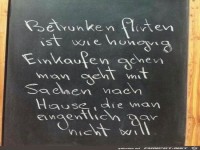 Betrunken flirten
ist wie hungrig
Einkaufen gehen
man geht mit
Sachen nach
Hause, die man
eingentlich gar
nicht will